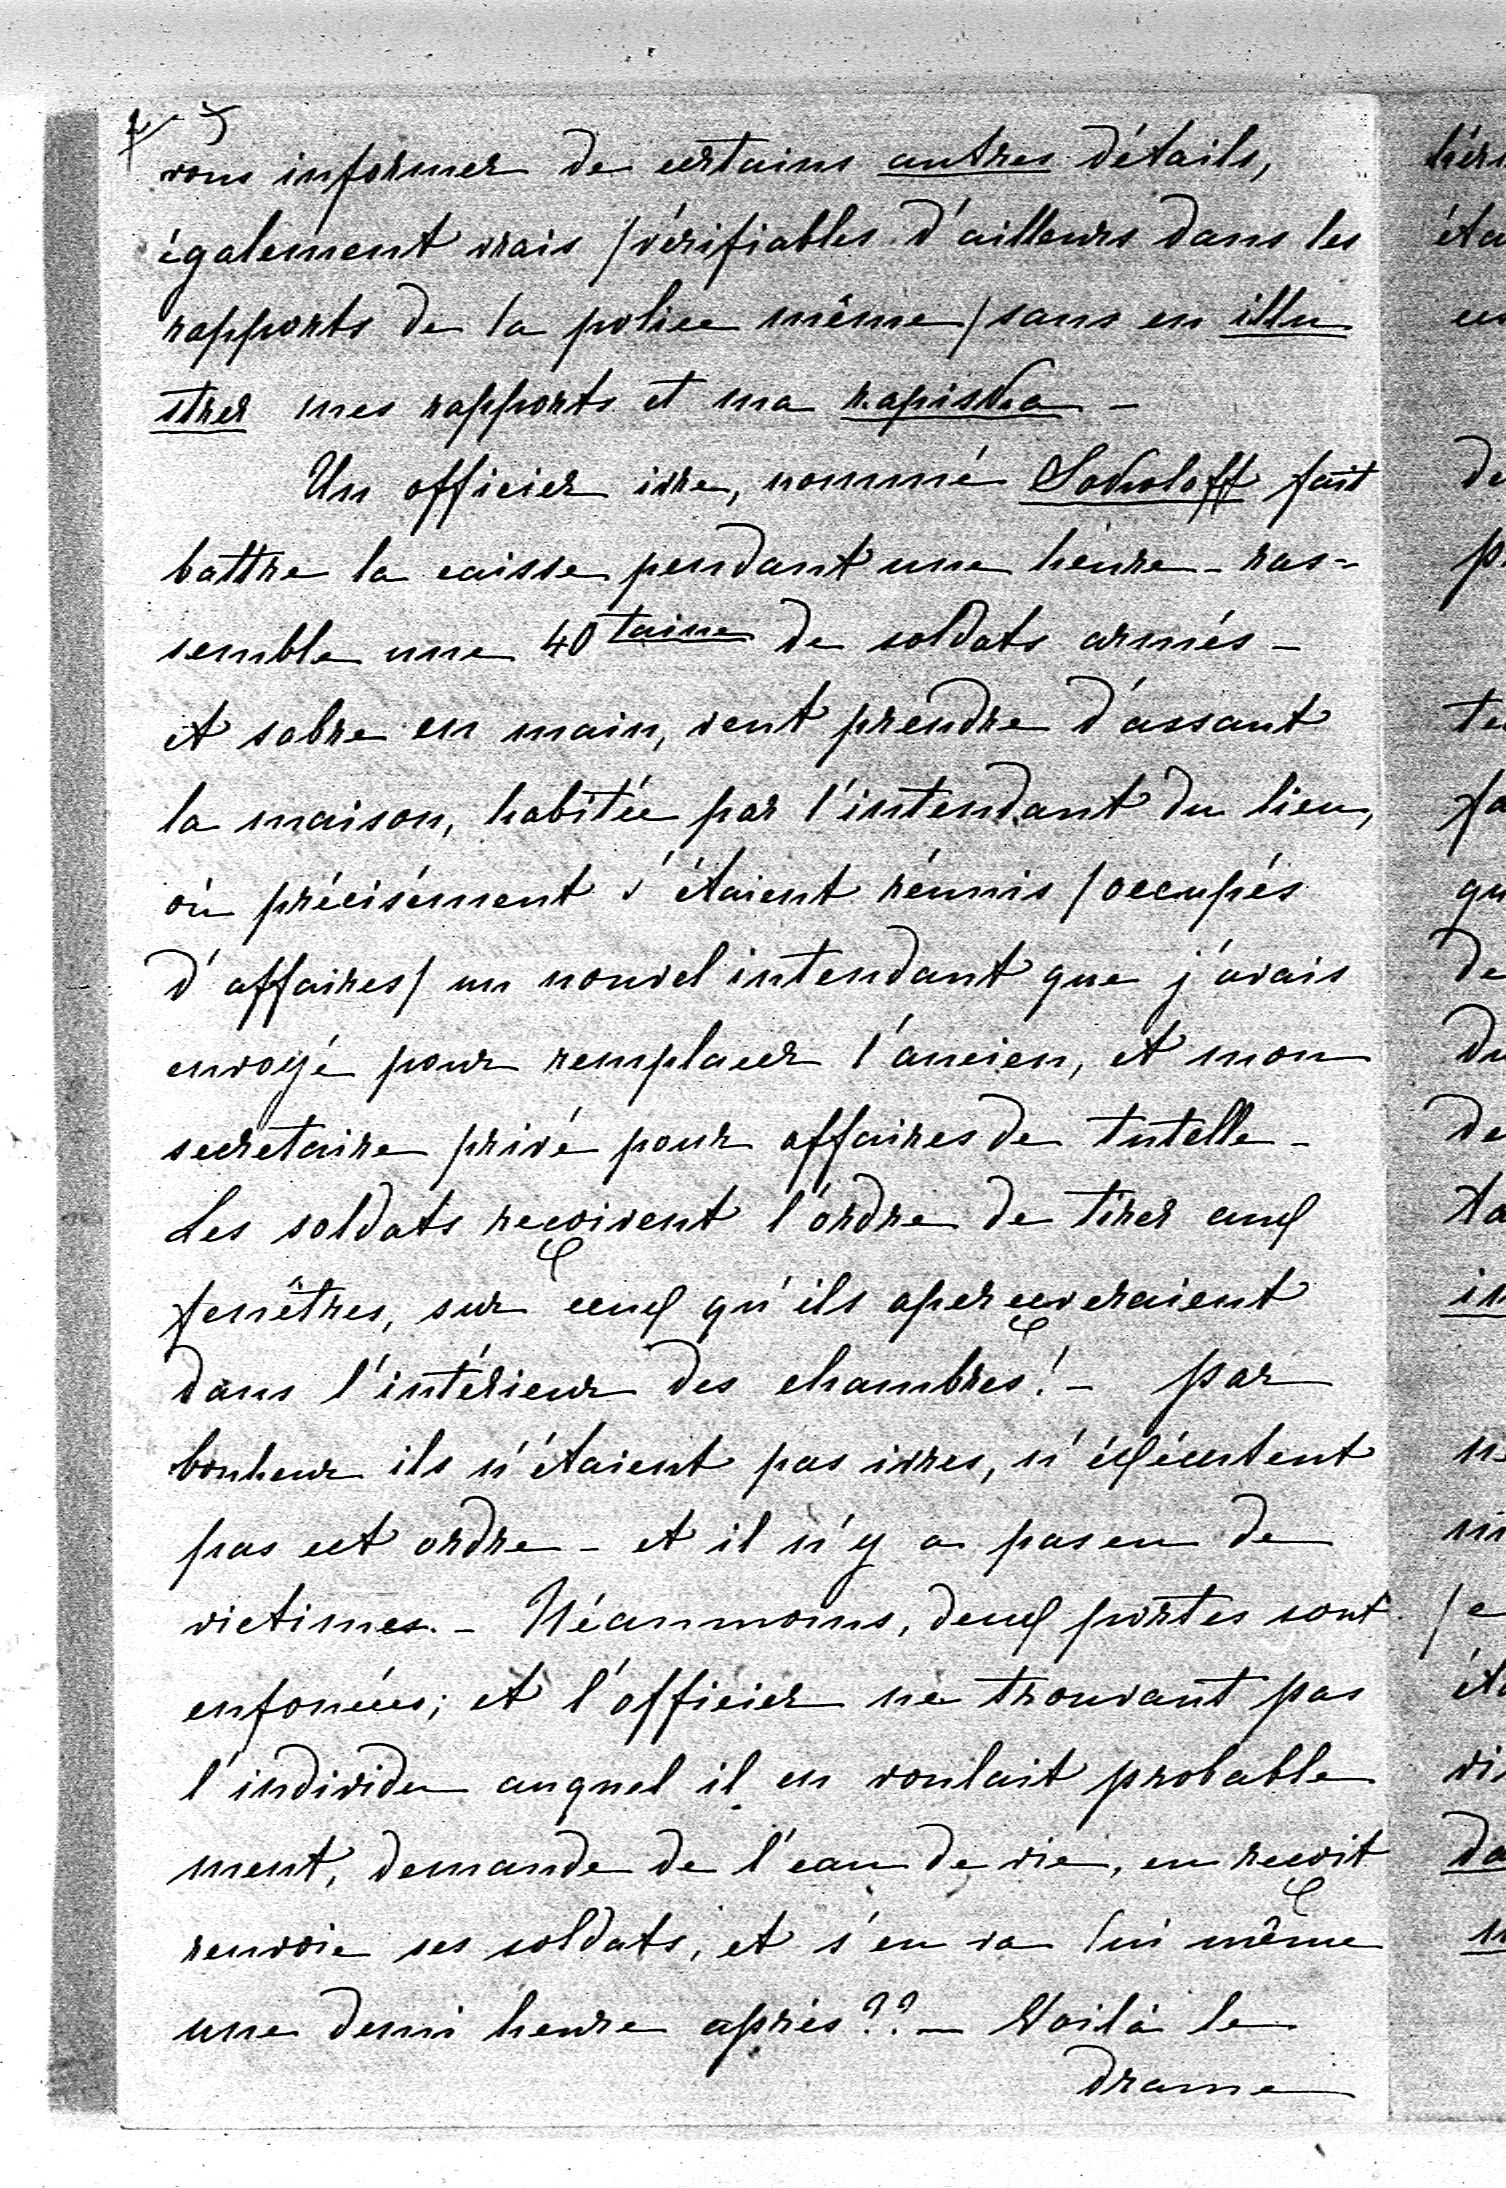 vous informer de certains autres détails,
également vrais /vérifiables d'ailleurs dans les
rapports de la police même/ sans en illu
strer mes rapports et ma zapiska –
Un officier ivre, nommé Sokoloff fait
battre la caisse pendant une heure – ras=
semble une 40taine de soldats armés –
et sabre en main, veut prendre d'assaut
la maison, habitée par l'intendant du lieu,
où précisément s'étaient réunis /occupés
d'affaires/ un nouvel intendant que j'avais
envoyé pour remplacer l'ancien, et mon
secretaire privé pour affaires de tutelle –
Les soldats reçoivent l'ordre de tirer aux
fenêtres, sur ceux qu'ils aperçeveraient
dans l'intérieur des chambres! – par
bonheur ils n'étaient pas ivres, n'éxécutent
pas cet ordre – et il n'y a pas eu de
victimes. – Néanmoins, deux portes sont
enfoncées; et l'officier ne trouvant pas
l'individu auquel il en voulait probable
ment, demande de l'eau de vie, en reçoit
renvoie ses soldats, et s'en va lui même
une demi heure après?? – Voilà le
drame